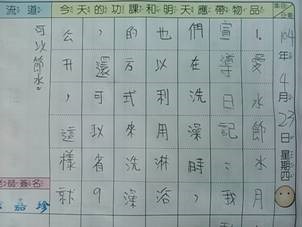 流道
今天的功課和明天應帶物品
104年4月23日星期四
1、愛水節水月
宣導日記：我
們在洗澡時，
也以利用淋浴
的方式來洗澡
，還可以省9
么升，這樣就
可以節水。
師簽名